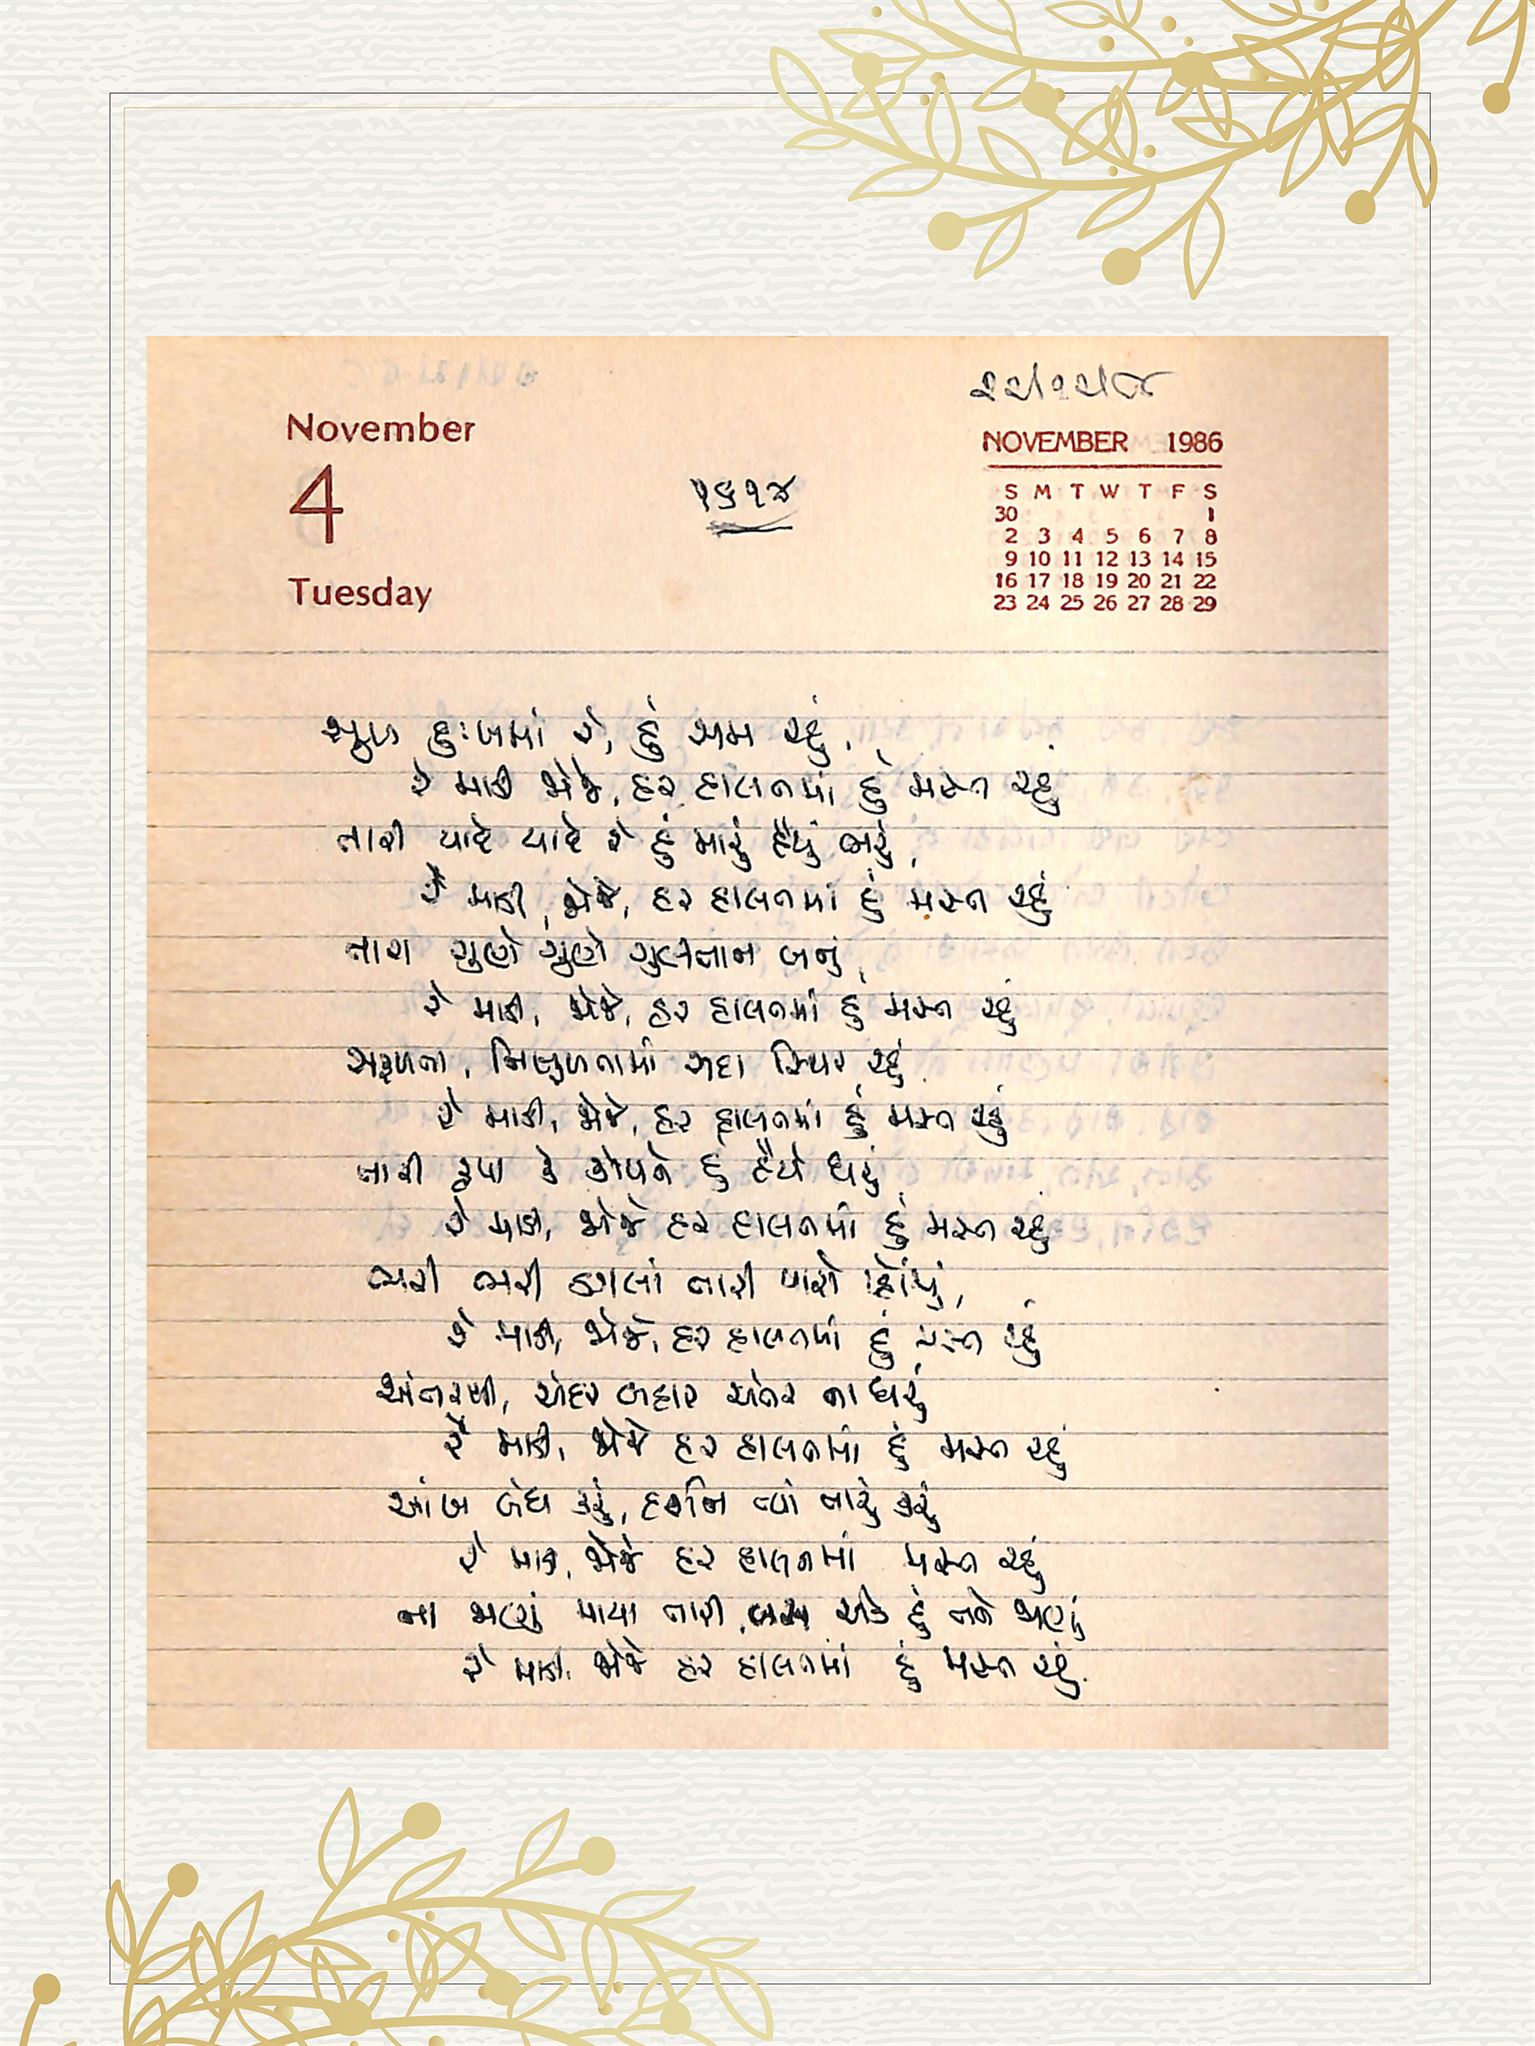 November
4
Tuesday
૧૬૧૪
NOVEMBER 1986
S M T W T F S
30 1
2 3 4 5 6 7 8
9 10 11 12 13 14 15
16 17 18 19 20 21 22
23 24 25 26 27 28 29
સુખ દુઃખમાં રે, હું સમ રહું,
રે માડી એજે, હર હાલતમાં હું મસ્ત રહું
તારી યાદે યાદે રે હું મારું હૈયું ભરું,
રે માડી, એજે, હર હાલતમાં હું મસ્ત રહું
તારા ગુણે ગુણે ગુલતાન બનું,
રે માડી, એજે, હર હાલતમાં હું મસ્ત રહું
સફળતા, નિષ્ફળતામાં સદા સ્થિર રહું
રે માડી, એજે, હર હાલતમાં હું મસ્ત રહું
તારી કૃપા કે કોપને હું હૈયે ધરું
રે માડી, એજે હર હાલતમાં હું મસ્ત રહું
ભરી ભરી ડગલાં તારી પાસે પહોંચું,
રે માડી, એજે, હર હાલતમાં હું મસ્ત રહું
અંતરથી, અંદર બહાર અંતર ના ધરું
રે માડી, એજે હર હાલતમાં હું મસ્ત રહું
આંખ બંધ કરું, દર્શન ત્યાં તારું કરું
રે માડી, એજે હર હાલતમાં મસ્ત રહું
ના જાણું માયા તારી, બસ એક હું તને જાણું
રે માડી, એજે હર હાલતમાં હું મસ્ત રહું.